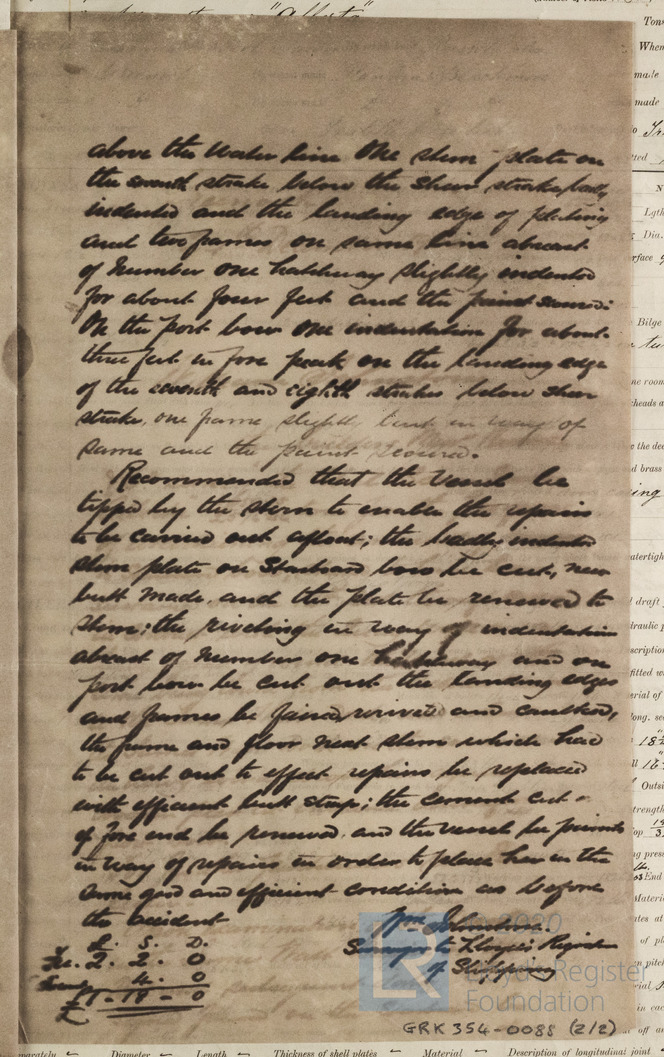 above the Water line One stem plate on
the seventh strake below the Sheer strake, badly
indented and the landing edge of plating
and two frames on same line abreast
of Number one hatchway slightly indented
for about four feet and the paint scored:
On the port bow one indentation for about
three feet in fore peak on the landing edge
of the seventh and eighth strakes below sheer
strake, one frame slightly bent in way of
same and the paint scored.
Recommended that the Vessel be
tipped by the stern to enable the repairs
to be carried out afloat; the badly indented
stem plate on Starboard bow be cut, new
butt made, and the plate be renewed to
stem; the riveting in way of indentation
abreast of Number one hatchway and on
port bow be cut out the landing edges
and frames be faired, rivited and caulked,
the frame and floor next stem which had
to be cut out to effect repairs be replaced
with efficient butt strap; the cement cut
of fore end be renewed, and the vessel be painted
in way of repairs in order to place her in the
same good and efficient condition as before
the accident
Wm Johnstone.
Surveyor to Lloyd's Register
of Shipping
£. S. D.
Fee. 2. 2. 0
4. 0
0
© 2020
Lloyd's Register
Foundation
GRK 354-0088 (2/2)
Tons
When
made
made
Lgth
Dia.
Bilge
ne room
heads a
the dec
d brass
watertigh
draft
draulic p
scription
fitted w
erial of
long. se
Outsi
strength
ng pres
End
Materia
ates at
of pla
n pitch
erial
in eac
off an
parately Diameter Length Thickness of shell plates Material Description of longitudinal joint